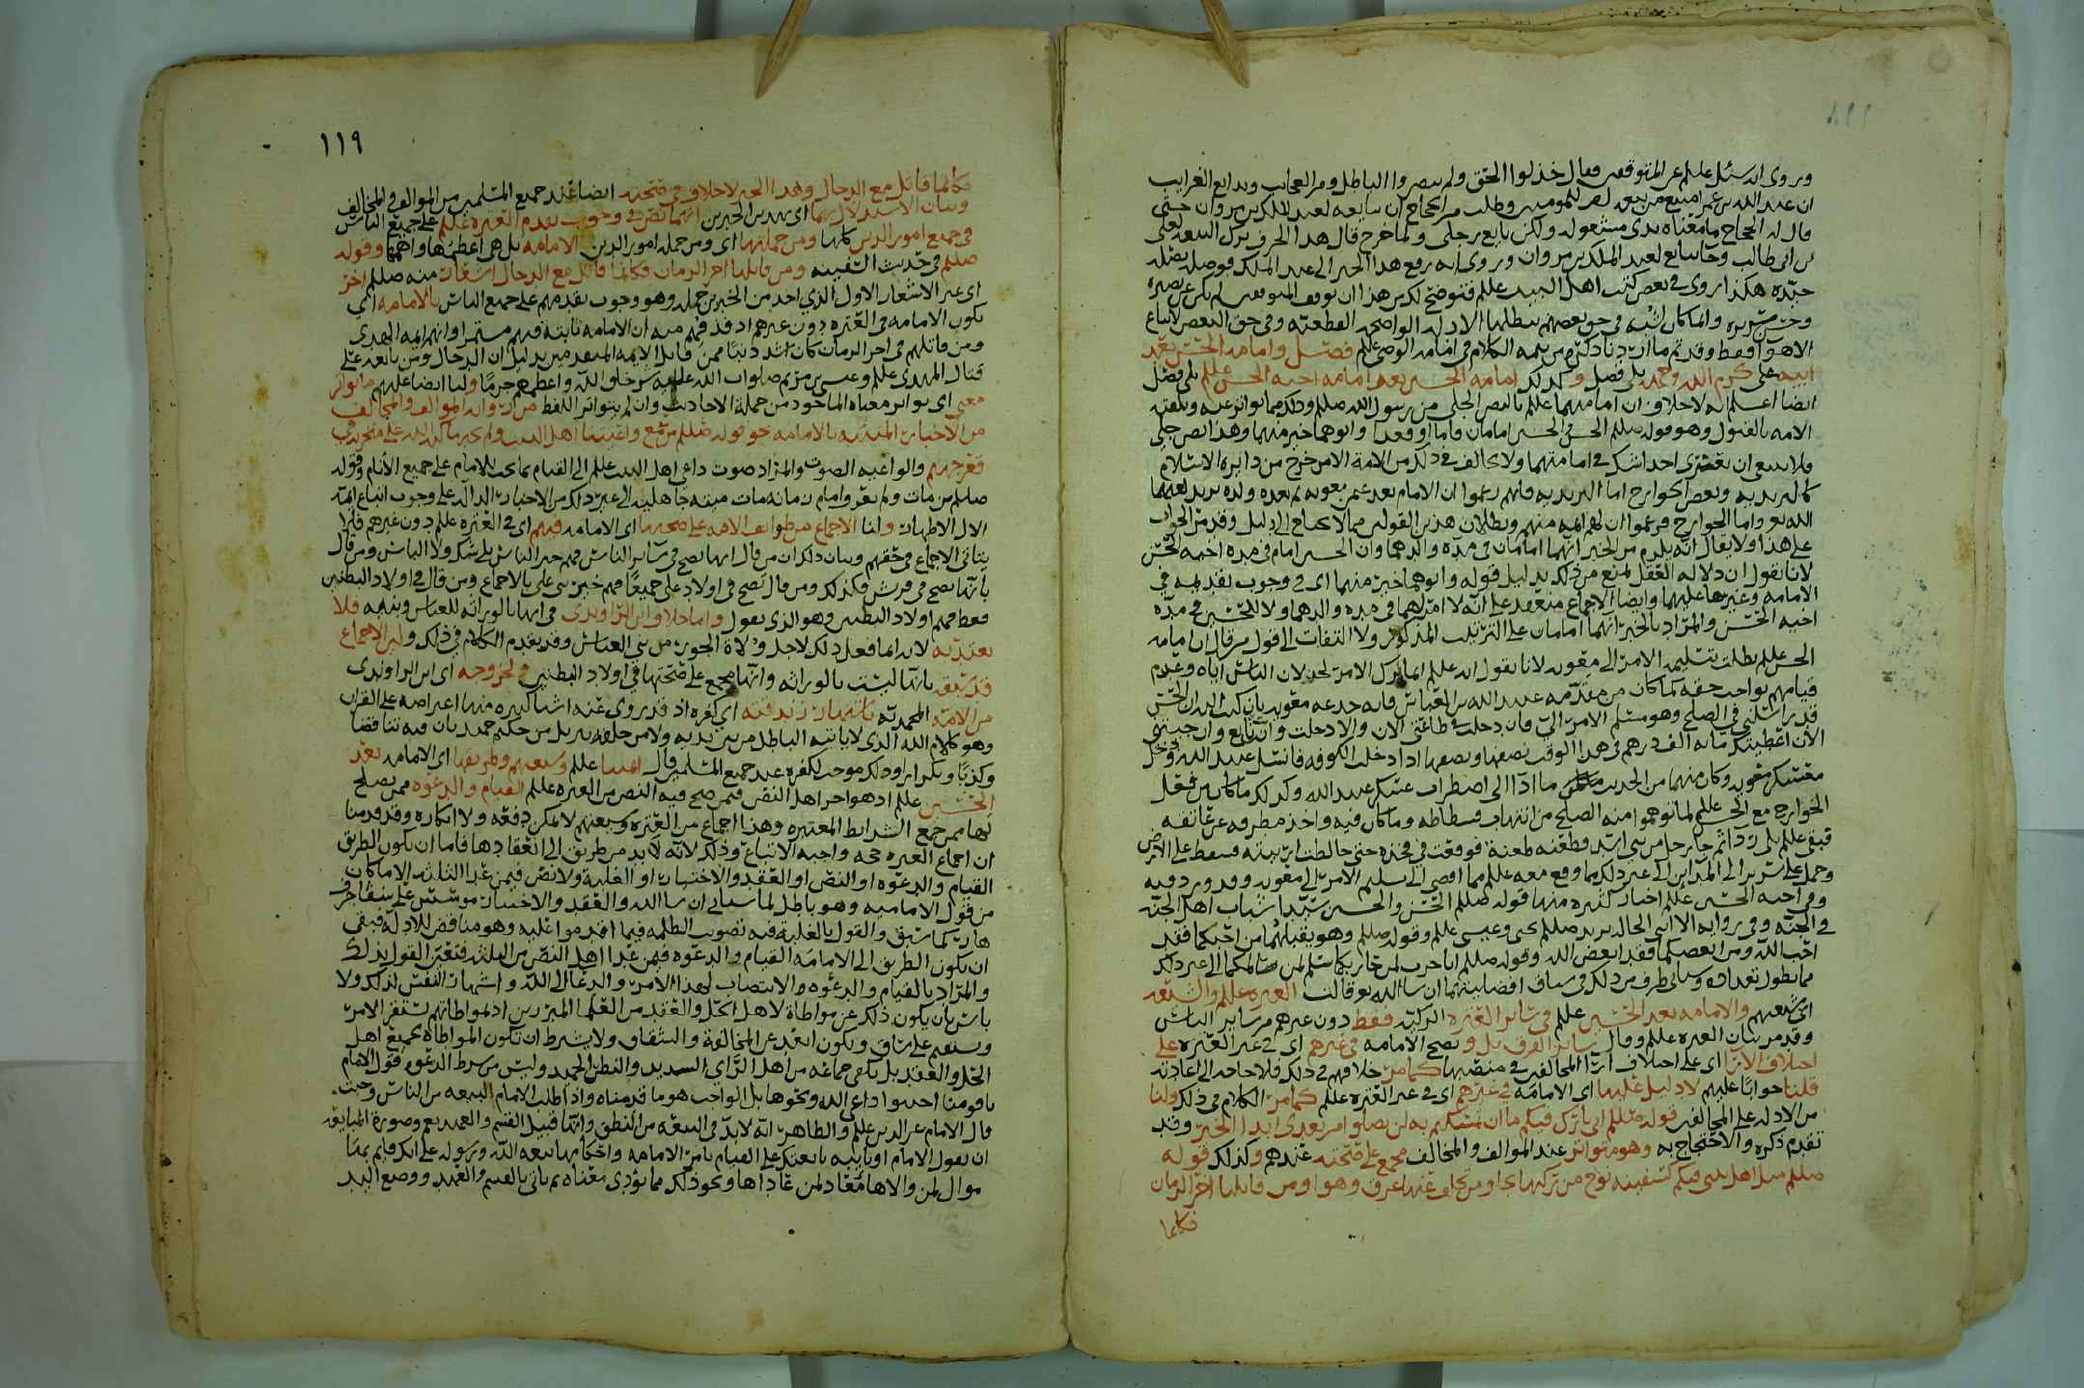 وروى انه سئل علىلم عن المتوقفين فقال خذلوا الحق ولم ينصروا الباطل ومن العجايب وبدايع الغرايب
ان عبد الله بن عمر امتنع من بيعة امير المومنين وطلب من الحجاج ان يبايعه لعبد الملك بن مروان حتى
قال له الحجاج ما معناه يدى مشغوله ولكن بايع رجلى ولما خرج قال هذا الحرف ترك البيعه لعلى
بن ابى طالب وجا يبايع لعبد الملك بن مروان وروى انه رفع هذا الخبر الى عبد الملك فوصله بصله
هكذا روى فى بعض كتب اهل البيت علىلم فتوضح لك من هذا ان توقف المتوقفين لم يكن عن بصيره
وانما كان لشبه فى حق بعضهم يبطلها الادله الواضحه القطعيه وفى حق البعض لاتباع
الاهوآ فقط وقد تم ما اردنا ذكره من تتمه الكلام فى امامه الوصى علىلم فصل وامامه الحسن بعد
ابيه على كرم الله وجهه بلى فصل وكذلك امامه الحسين بعد امامه اخيه الحسن علىلم بلى فصل
ايضا اعلم انه لا خلاف ان امامتهما علىلم بالنص الجلى من رسول الله صللم وذلك مما تواتر عنه وتلقته
الامه بالقبول وهو قوله صللم الحسن والحسين امامان قاما او قعدا وابوهما خير منهما وهذا نص جلى
فلا ينبغى ان يعترى احدا شك فى امامتهما ولا يخالف فى ذلك من الامة الا من خرج من دايره الاسلام
كاليزيديه وبعض الخوارج اما اليزيديه فانهم زعموا ان الامام بعد عمر معويه ثم بعده ولده يزيد لعنهما
الله تع واما الخوارج فزعموا ان لهم ايمه منهم وبطلان هذين القولين مما لا يحتاج الى دليل وقد مر الجواب
على هذا ولا يقال انه يلزم من الخبر انهما امامان فى مده والدهما وان الحسين امام فى مده اخيه الحسن
لانا نقول ان دلاله العقل تمنع من ذلك بدليل قوله وابوهما خير منهما اى فى وجوب تقديمه فى
الامامه وغيرها عليهما وايضا الاجماع منعقد على انه لا امر لهما فى مده والدهما ولا للحسين فى مده
اخيه الحسن والمراد بالخبر انهما امامان على الترتيب المذكور ولا التفات الى قول من قال ان امامه
الحسن علىلم بطلت بتسليمه الامر الى معويه لانا نقول انه علىلم انما ترك الامر لخذلان الناس اياه وعدم
قيامهم بواجب حقه كما كان من مقدمه عبيد الله بن العباس فانه خدعه معويه بان كتب اليه ان الحسن
قد راسلنى فى الصلح وهو مسلم الامر الىّ فان دخلت فى طاعتى الان والا دخلت وانت تابع وان جيتنى
الان اعطيتك مايه الف درهم فى هذا الوقت نصفها ونصفها اذا دخلت الكوفه فانسل عبيد الله ودخل
معسكر معويه وكان منهما من الحديث ما ادا الى اضطراب عسكر عبيد الله وكذلك ما كان من فعل
الخوارج مع الحسن علىلم لما توهموا منه الصلح من انتهاب فسطاطه وما كان فيه واخذ مطرفه عن عاتقه
فبقى علىلم بلى ردا ثم جا رجل من بنى اسد فطعنه طعنة فوقعت فى فخذه حتى خالطت اربيته فسقط على الارض
وحمل على سرير الى المداين الى غير ذلك مما وقع معه علىلم مما افضى الى تسليم الامر الى معويه وقد ورد فيه
وفى اخيه الحسين علىلم اخبار كثيره منها قوله صللم الحسن والحسين سيدا شباب اهل الجنه
فى الجنه وفى روايه الا ابنى الخاله يريد صللم يحيى وعيسى علىلم وقوله صللم وهو يقبلهما من احبكما فقد
احب الله ومن ابغضكما فقد ابغض الله وقوله صللم انا حرب لمن حاربكما سلم لمن سالمكما الى غير ذلك
مما يطول تعداده وسياتى طرف من ذلك فى سياق افضليتهما ان شا الله تع قالت العتره علىلم والشيعه
اى شيعتهم والامامه بعد الحسنين علىلم فى ساير العتره الزكيه فقط دون غيرهم من ساير الناس
وقد مر بيان العتره علىلم وقال ساير الفرق بل وتصح الامامه فى غيرهم اى فى غير العتره على
اختلاف الآرا اى على اختلاف ارآ المخالفين فى منصبها كما مر خلافهم فى ذلك فلا حاجه الى اعادته
قلنا جوابا عليهم لا دليل عليها اى الامامه فى غيرهم اى فى غير العتره علىلم كما مر الكلام فى ذلك ولنا
من الادله على المخالفين قوله صللم انى تارك فيكم ما ان تمسكتم به لن تضلوا من بعدى ابدا الخبر وقد
تقدم ذكره والاحتجاج به وهو متواتر عند الموالف والمخالف مجمع على صحته عندهم وكذلك قوله
صللم مثل اهل بيتى فيكم كسفينه نوح من ركبها نجا ومن تخلف عنها غرق وهوا ومن قاتلنا اخر الزمان
فكانما
١١٩
فكانما قاتل مع الدجال وهذا الخبر لا خلاف فى صحته ايضا عند جميع المسلمين من الموالف والمخالف
وبيان الاستدلال بهما اى بهذين الخبرين انهما نص فى وجوب تقدم العتره علىلم على جميع الناس
فى جميع امور الدين كلها ومن جملتها اى ومن جمله امور الدين الامامه بل هى اعظمها واهمها وقوله
صللم فى حديث السفينه ومن قاتلنا اخر الزمان فكانما قاتل مع الدجال اشعار منه صللم اخر
اى غير الاشعار الاول الذى اخذ من الخبرين جمله وهو وجوب تقدمهم على جميع الناس بالامامه اى
بكون الامامه فى العتره دون غيرهم اذ قد فهم منه ان الامامه ثابته فيهم مستمرا وانهم ايمه الهدى
ومن قاتلهم فى اخر الزمان كان اشد ذنبا ممن قاتل الايمه المتقدمين بدليل ان الدجال ومن تابعه على
قتال المهدى علىلم وعيسى بن مريم صلوات الله عليه شر خلق الله واعظمهم جرما ولنا ايضا عليهم ما تواتر
معنى اى تواتر معناه الماخوذ من جملة الاحاديث وان لم يتواتر اللفظ من روايه الموالف والمخالف
من الاخبار المنبيه بالامامه نحو قوله صللم من سمع واعيتنا اهل البيت ولم يجبها كبه الله على منخريه فى
قعر جهنم والواعيه الصوت والمراد صوت داعى اهل البيت علىلم الى القيام بما يجب للامام على جميع الانام وقوله
صللم من مات ولم يعرف امام زمانه مات ميته جاهليه الى غير ذلك من الاخبار الداله على وجوب اتباع ايمه
الال الاطهار ولنا الاجماع من طوايف الامه على صحتها اى الامامه فيهم اى فى العتره علىلم دون غيرهم فلم
يتاتى الاجماع فى حقهم وبيان ذلك ان من قال انها تصح فى ساير الناس فهم خير الناس بلى شك ولا الباس ومن قال
بانها تصح فى قريش فكذلك ومن قال تصح فى اولاد على جميعا فهم خير بنى على بالاجماع ومن قال فى اولاد البطنين
فقط فهم اولاد البطنين وهو الذى نقول واما خلاف ابن الراوندى فى انها بالوراثه للعباس وبنيه فلا
يعتد به لانه انما فعل ذلك لاجل ولاة الجور من بنى العباس وقد تقدم الكلام فى ذلك ولان الاجماع
قد سبقه بانها ليست بالوراثه وانها مجمع على صحتها فى اولاد البطنين ولخروجه اى ابن الراوندى
من الامه المحمديه باشتهار زندقته اى كفره اذ قد يروى عنه اشيا كثيره منها اعتراضه على القران
وهو كلام الله الذى لا ياتيه الباطل من بين يديه ولا من خلفه تنزيل من حكيم حميد بان فيه تناقضا
وكذبا وتكرارا وذلك موجب لكفره عند جميع المسلمين قال ايمتنا علىلم وشيعتهم وطريقها اى الامامه بعد
الحسنين علىلم اذ هو اخر اهل النص فيمن صح فيه النص من العتره علىلم القيام والدعوه ممن يصلح
لها ممن جمع الشرايط المعتبره وهذا اجماع من العتره وشيعتهم لا يمكن دفعه ولا انكاره وقد قدمنا
ان اجماع العتره حجه واجبه الاتباع وذلك لانه لا بد من طريق الى انعقادها فاما ان يكون الطريق
القيام والدعوه او النص او العقد والاختيار او الغلبه ولا نص فيمن عدا الثلثه الا ما كان
من قول الاماميه وهو باطل لما سياتى ان شا الله والعقد والاختيار موسس على شفا جرف
هار كما سبق والقول بالغلبه فيه تصويب الظلمه فيما اقدموا عليه وهو مناقض للادله فبقى
ان يكون الطريق الى الامامه القيام والدعوه فيمن عدا اهل النص من الثلثه فتعين القول بذلك
والمراد بالقيام والدعوه والانتصاب لهذا الامر والدعا الى الله واشهار النفس لذلك ولا
باس بان يكون ذلك عن مواطاة لاهل الحل والعقد من العلما المبرزين اذ بمواطاتهم يستقر الامر
ويستقيم على ساق ويكون ابعد عن المخالفة والشقاق ولا يشترط ان تكون المواطاه بجميع اهل
الحل والعقد بل يكفى جماعه من اهل الراى السديد والنظر الحميد وليس من شرط الدعوه قول الامام
يا قومنا اجيبوا داعى الله ونحوها بل الواجب هو ما قدمناه واذا طلب الامام البيعه من الناس وجبت
قال الامام عز الدين علىلم والظاهر انه لا بد فى البيعه من النطق وانها قبيل القسم والعهد نعم وصورة المبايعه
ان يقول الامام او نايبه بايعتك على القيام بامر الامامه واحكامها بيعه الله ورسوله على انك قايم بهذا
موال لمن والاها معاد لمن عاداها ونحو ذلك مما يؤدى معناه ثم ياتى بالقسم والعهد ووضع اليد